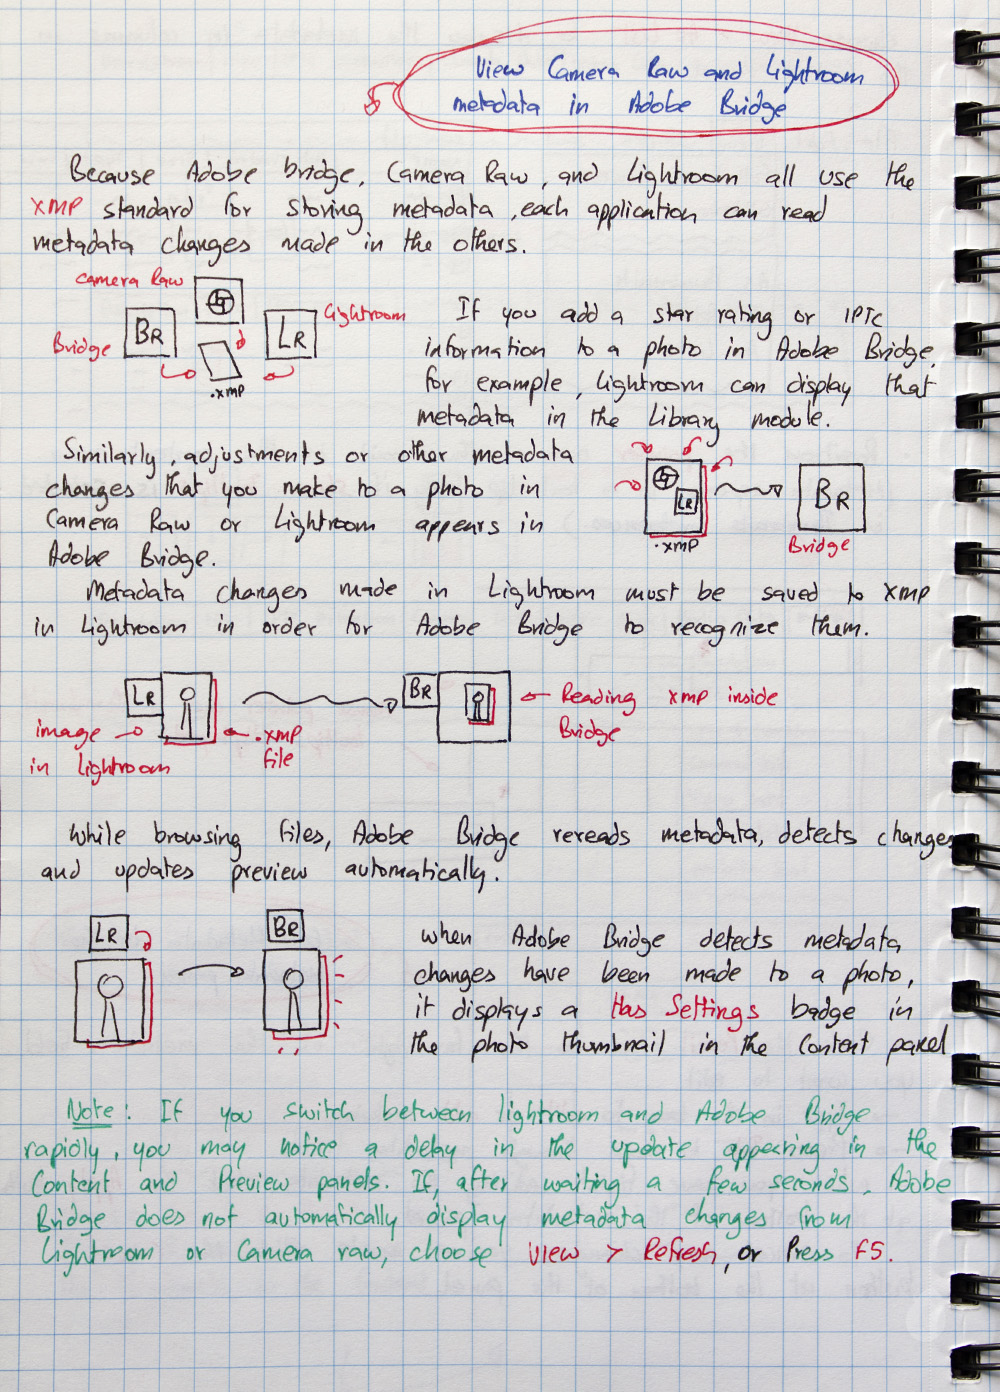 View Camera Raw and Lightroom
metadata in Adobe Bridge
Because Adobe bridge, Camera Raw, and Lightroom all use the
XMP standard for storing metadata, each application can read
metadata changes made in the others.
Camera Raw
BR
Bridge
LR
Lightroom
.xmp
If you add a star rating or IPTC
information to a photo in Adobe Bridge,
for example, Lightroom can display that
metadata in the Library module.
Similarly, adjustments or other metadata
changes that you make to a photo in
Camera Raw or Lightroom appears in
Adobe Bridge.
LR
.xmp
BR
Bridge
Metadata changes made in Lightroom must be saved to XMP
in Lightroom in order for Adobe Bridge to recognize them.
LR
image
in Lightroom
.XMP
file
BR
Reading XMP inside
Bridge
While browsing files, Adobe Bridge rereads metadata, detects changes
and updates preview automatically.
LR
BR
when Adobe Bridge detects metadata
changes have been made to a photo,
it displays a Has Settings badge in
the photo thumbnail in the Content panel
Note: If you switch between lightroom and Adobe Bridge
rapidly, you may notice a delay in the update appearing in the
Content and Preview panels. If, after waiting a few seconds, Adobe
Bridge does not automatically display metadata changes from
Lightroom or Camera raw, choose View > Refresh, or Press F5.